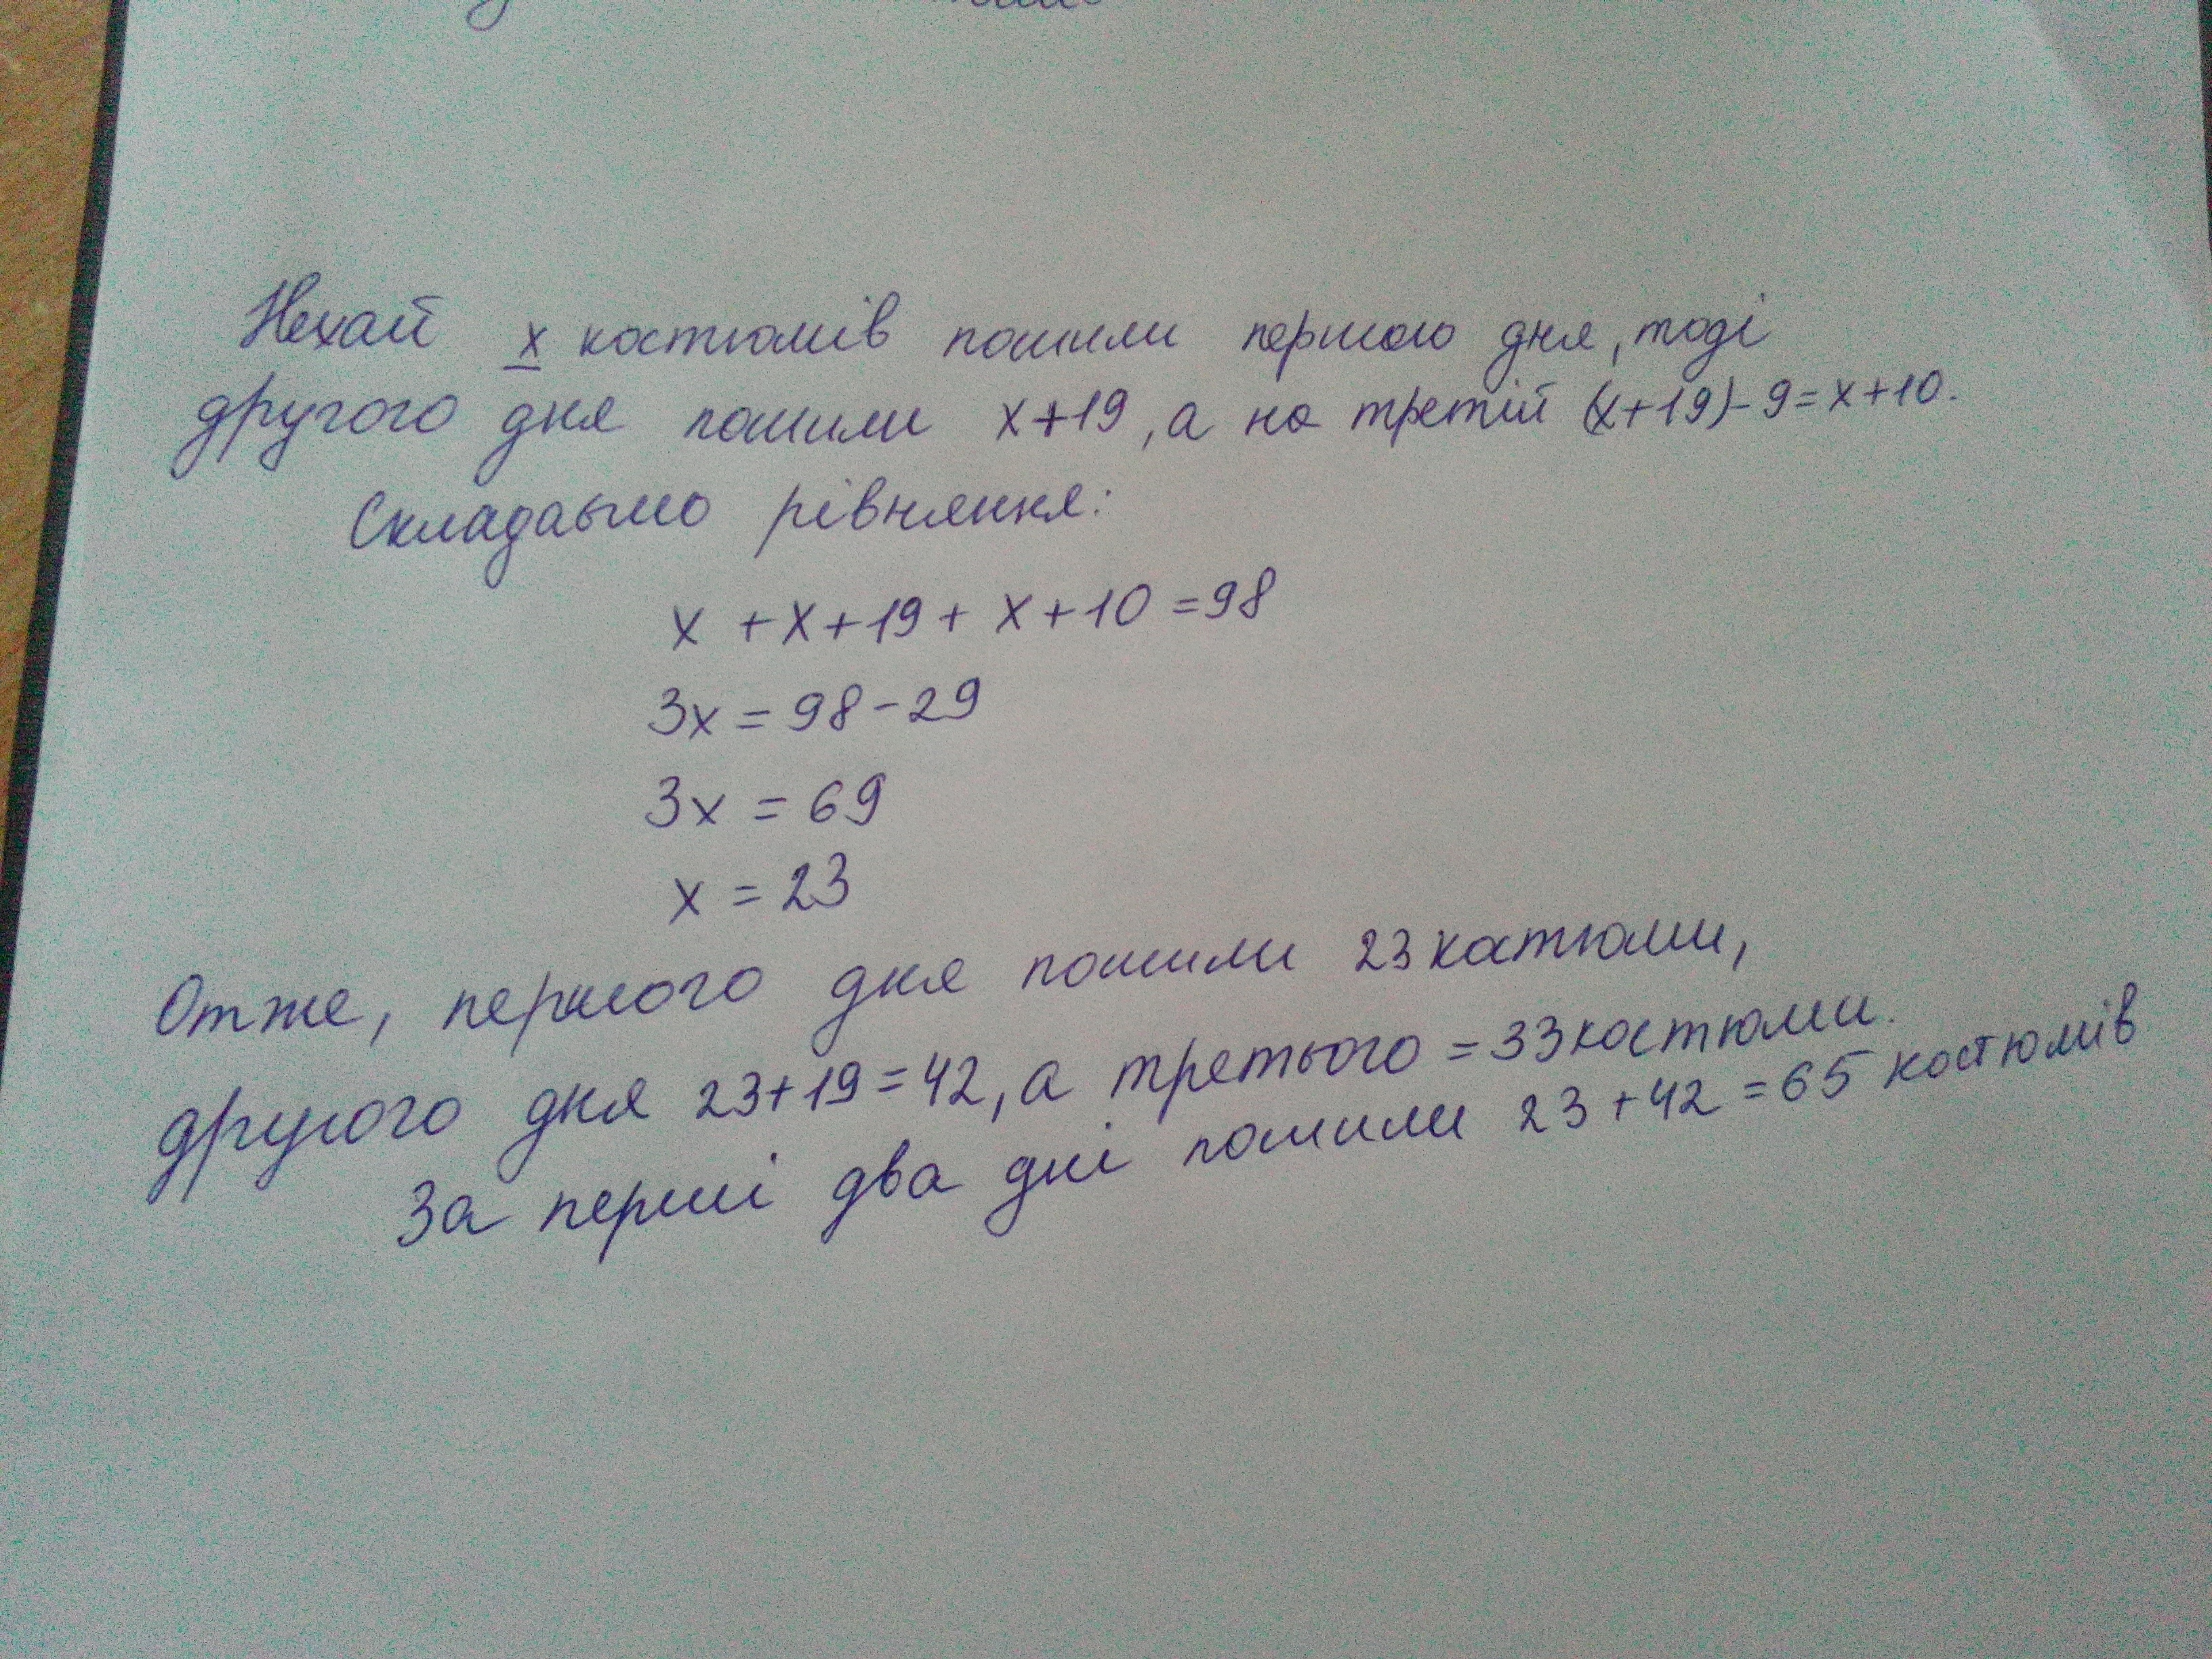 Нехай х костюмів пошили першого дня, тоді
другого дня пошили х+19, а на третій (х+19)-9=х+10.
Складаьмо рівняння:
х + х + 19 + х + 10 = 98
3х = 98 - 29
3х = 69
х = 23
Отже, першого дня пошили 23 катюми,
другого дня 23+19=42, а третього = 33 костюми.
За перші два дні пошили 23 + 42 = 65 костюмів